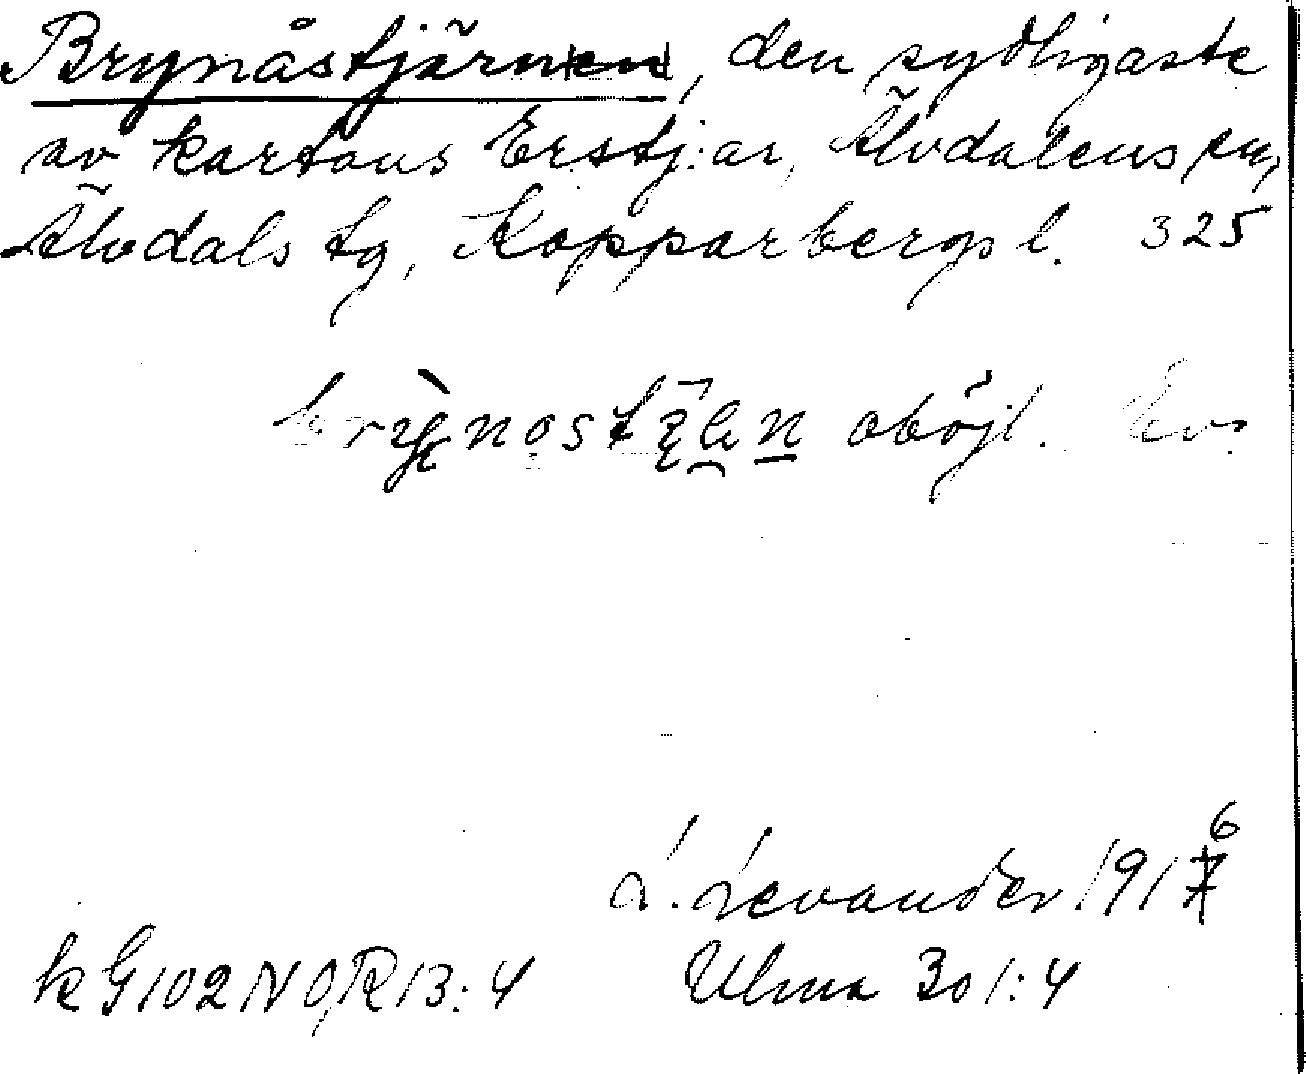 Brynåstjärnen, den sydligaste
av kartans Erstj:ar, Älvdalens sn,
Älvdals tg, Kopparbergs l. 325
oböjl.
L. Levander 1916
kG102NO, R13:4 Ulma 301:4